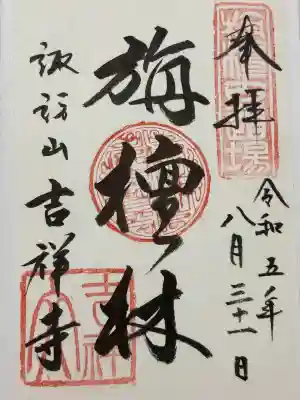 奉拝
令和五年
八月三十一日
旃檀林
諏訪山吉祥寺